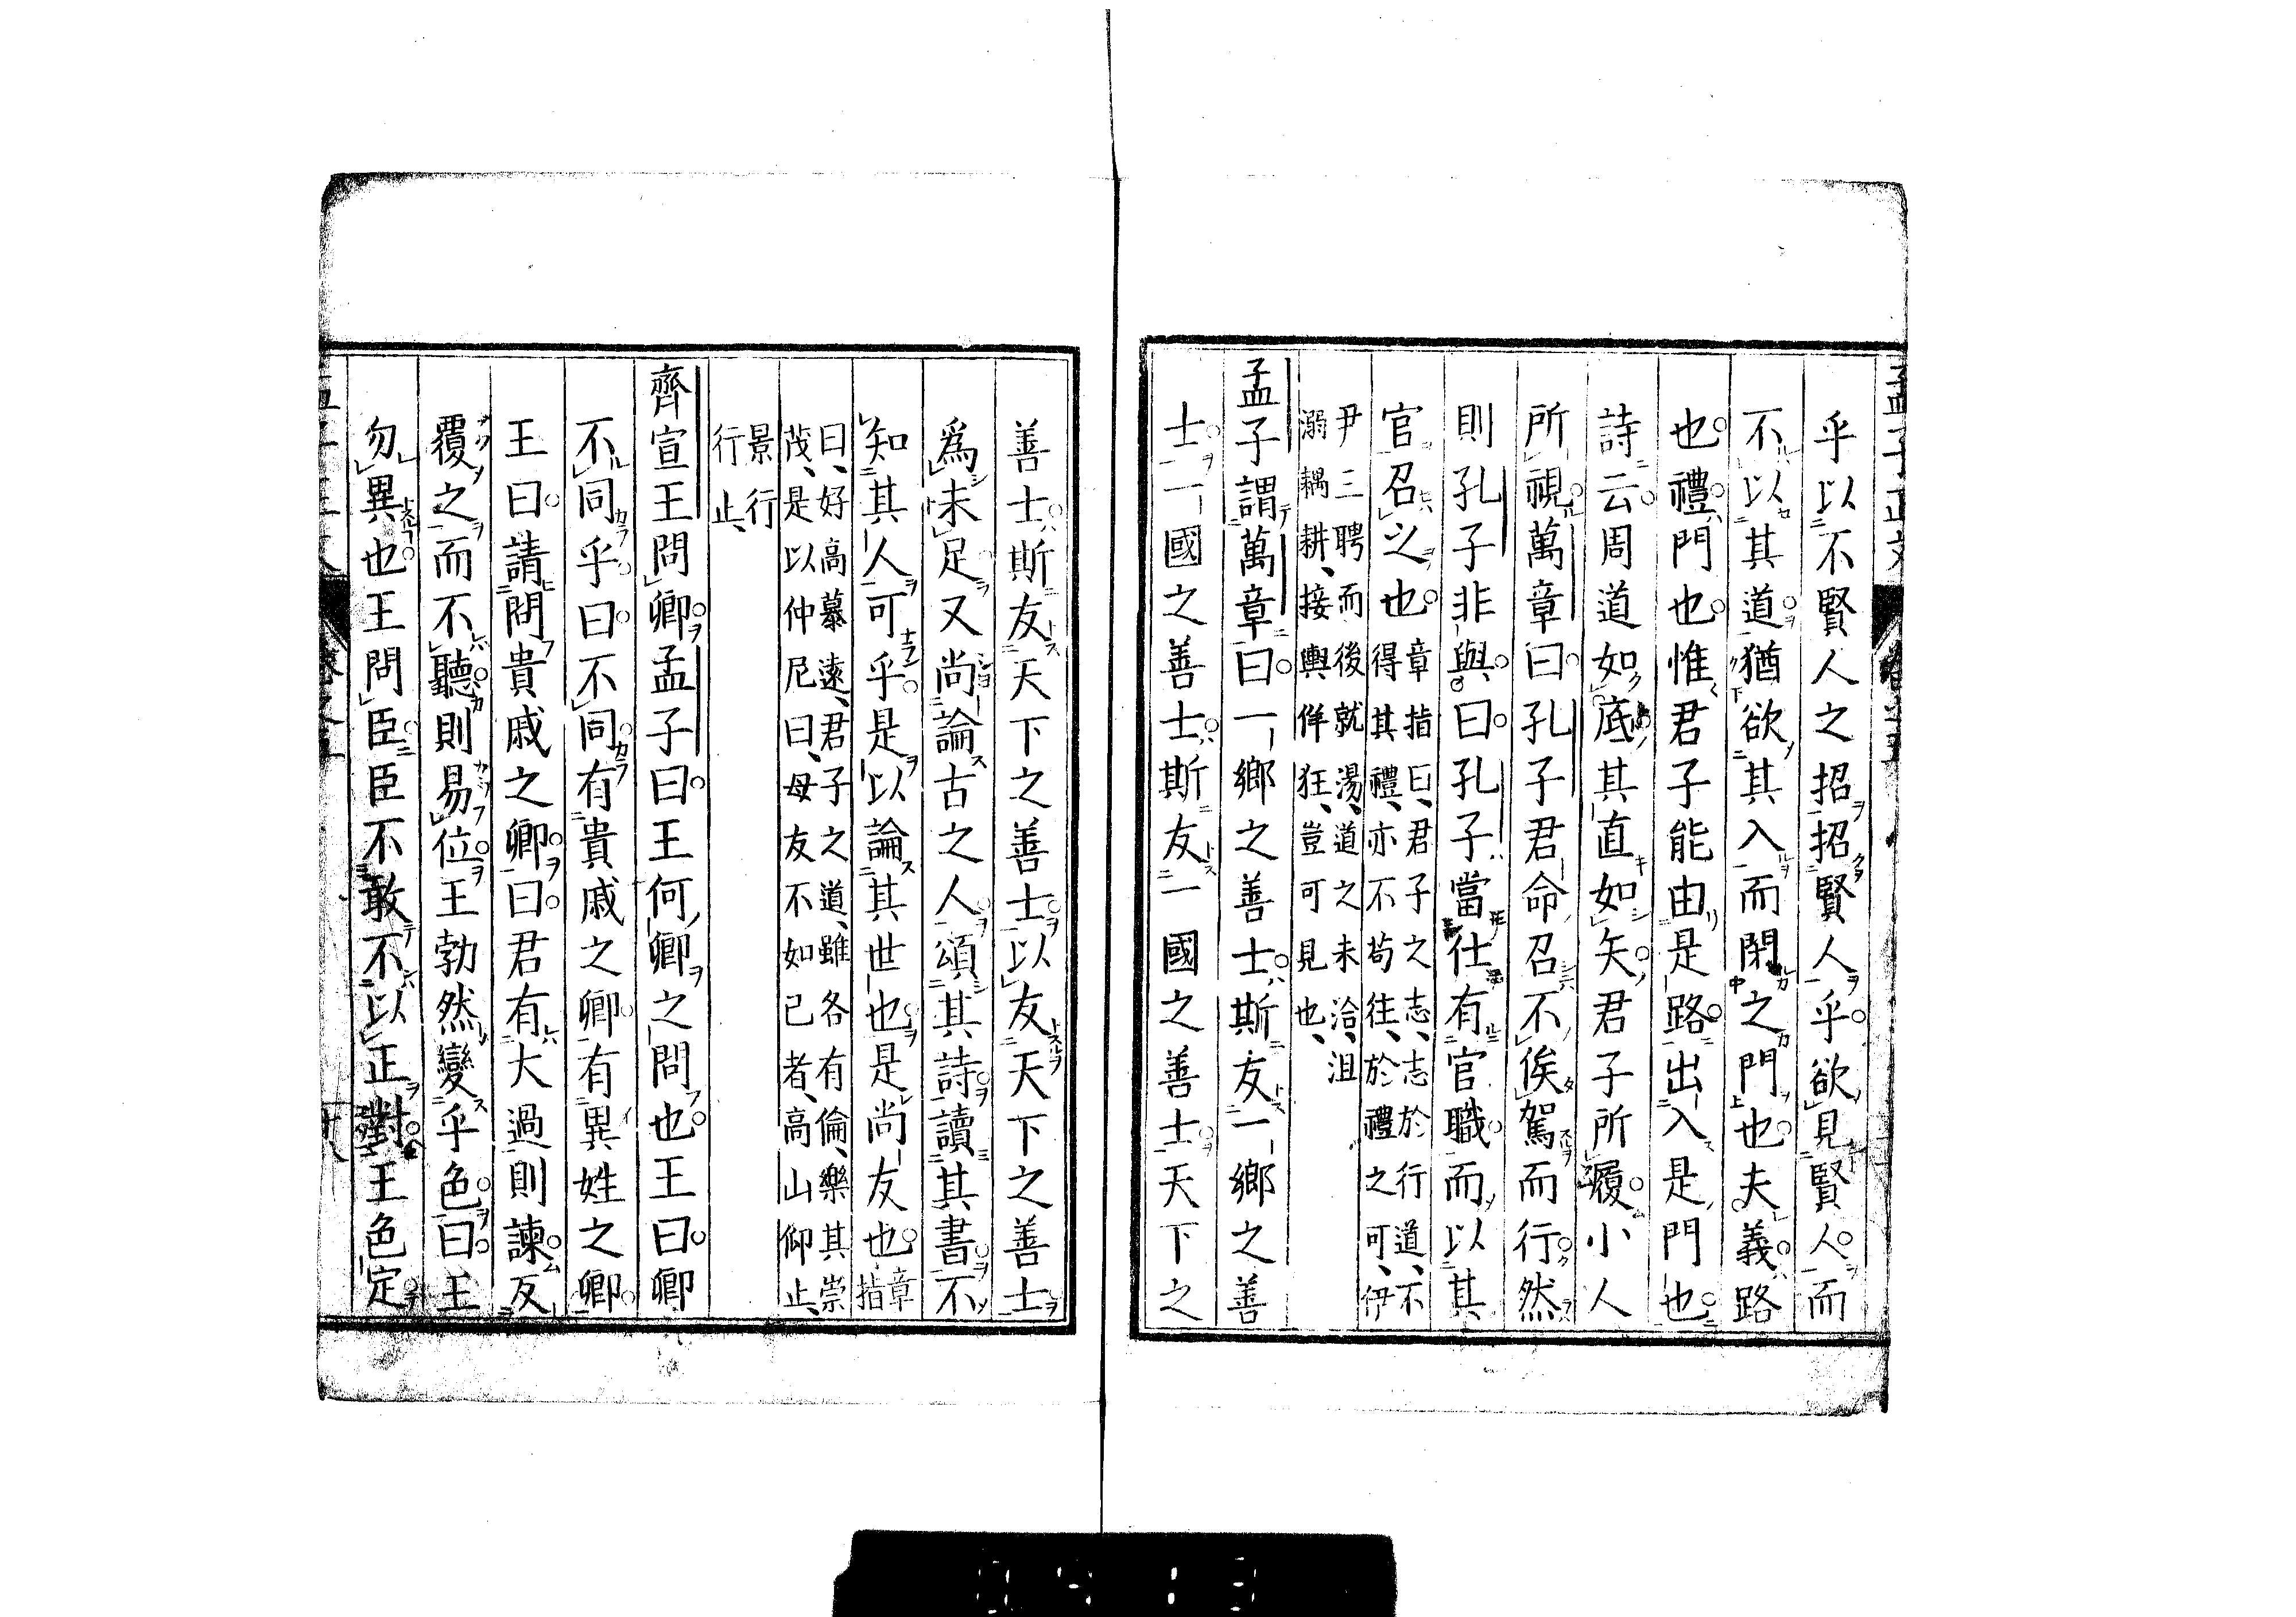 乎以不賢人之招招賢人乎欲見賢人而
不以其道猶欲其入而閉之門也夫義路
也禮門也惟君子能由是路出入是門也
詩云周道如底其直如矢君子所履小人
所視萬章曰孔子君命召不俟駕而行然
則孔子非與曰孔子當仕有官職而以其
官召之也章指曰、君子之志、志於行道、不
得其禮、亦不苟往、於禮之可、伊
尹三聘而後就湯、道之未洽、沮
溺耦耕、接輿佯狂、豈可見也、
孟子謂萬章曰一鄉之善士斯友一鄉之善
士一國之善士斯友一國之善士天下之
善士斯友天下之善士以友天下之善士
爲未足又尚論古之人頌其詩讀其書不
知其人可乎是以論其世也是尚友也章
指
曰、好高慕遠、君子之道、雖各有倫、樂其崇
茂、是以仲尼曰、毋友不如已者、高山仰止、
景行
行止、
齊宣王問卿孟子曰王何卿之問也王曰卿
不同乎曰不同有貴戚之卿有異姓之卿
王曰請問貴戚之卿曰君有大過則諫反
覆之而不聽則易位王勃然變乎色曰王
勿異也王問臣臣不敢不以正對王色定